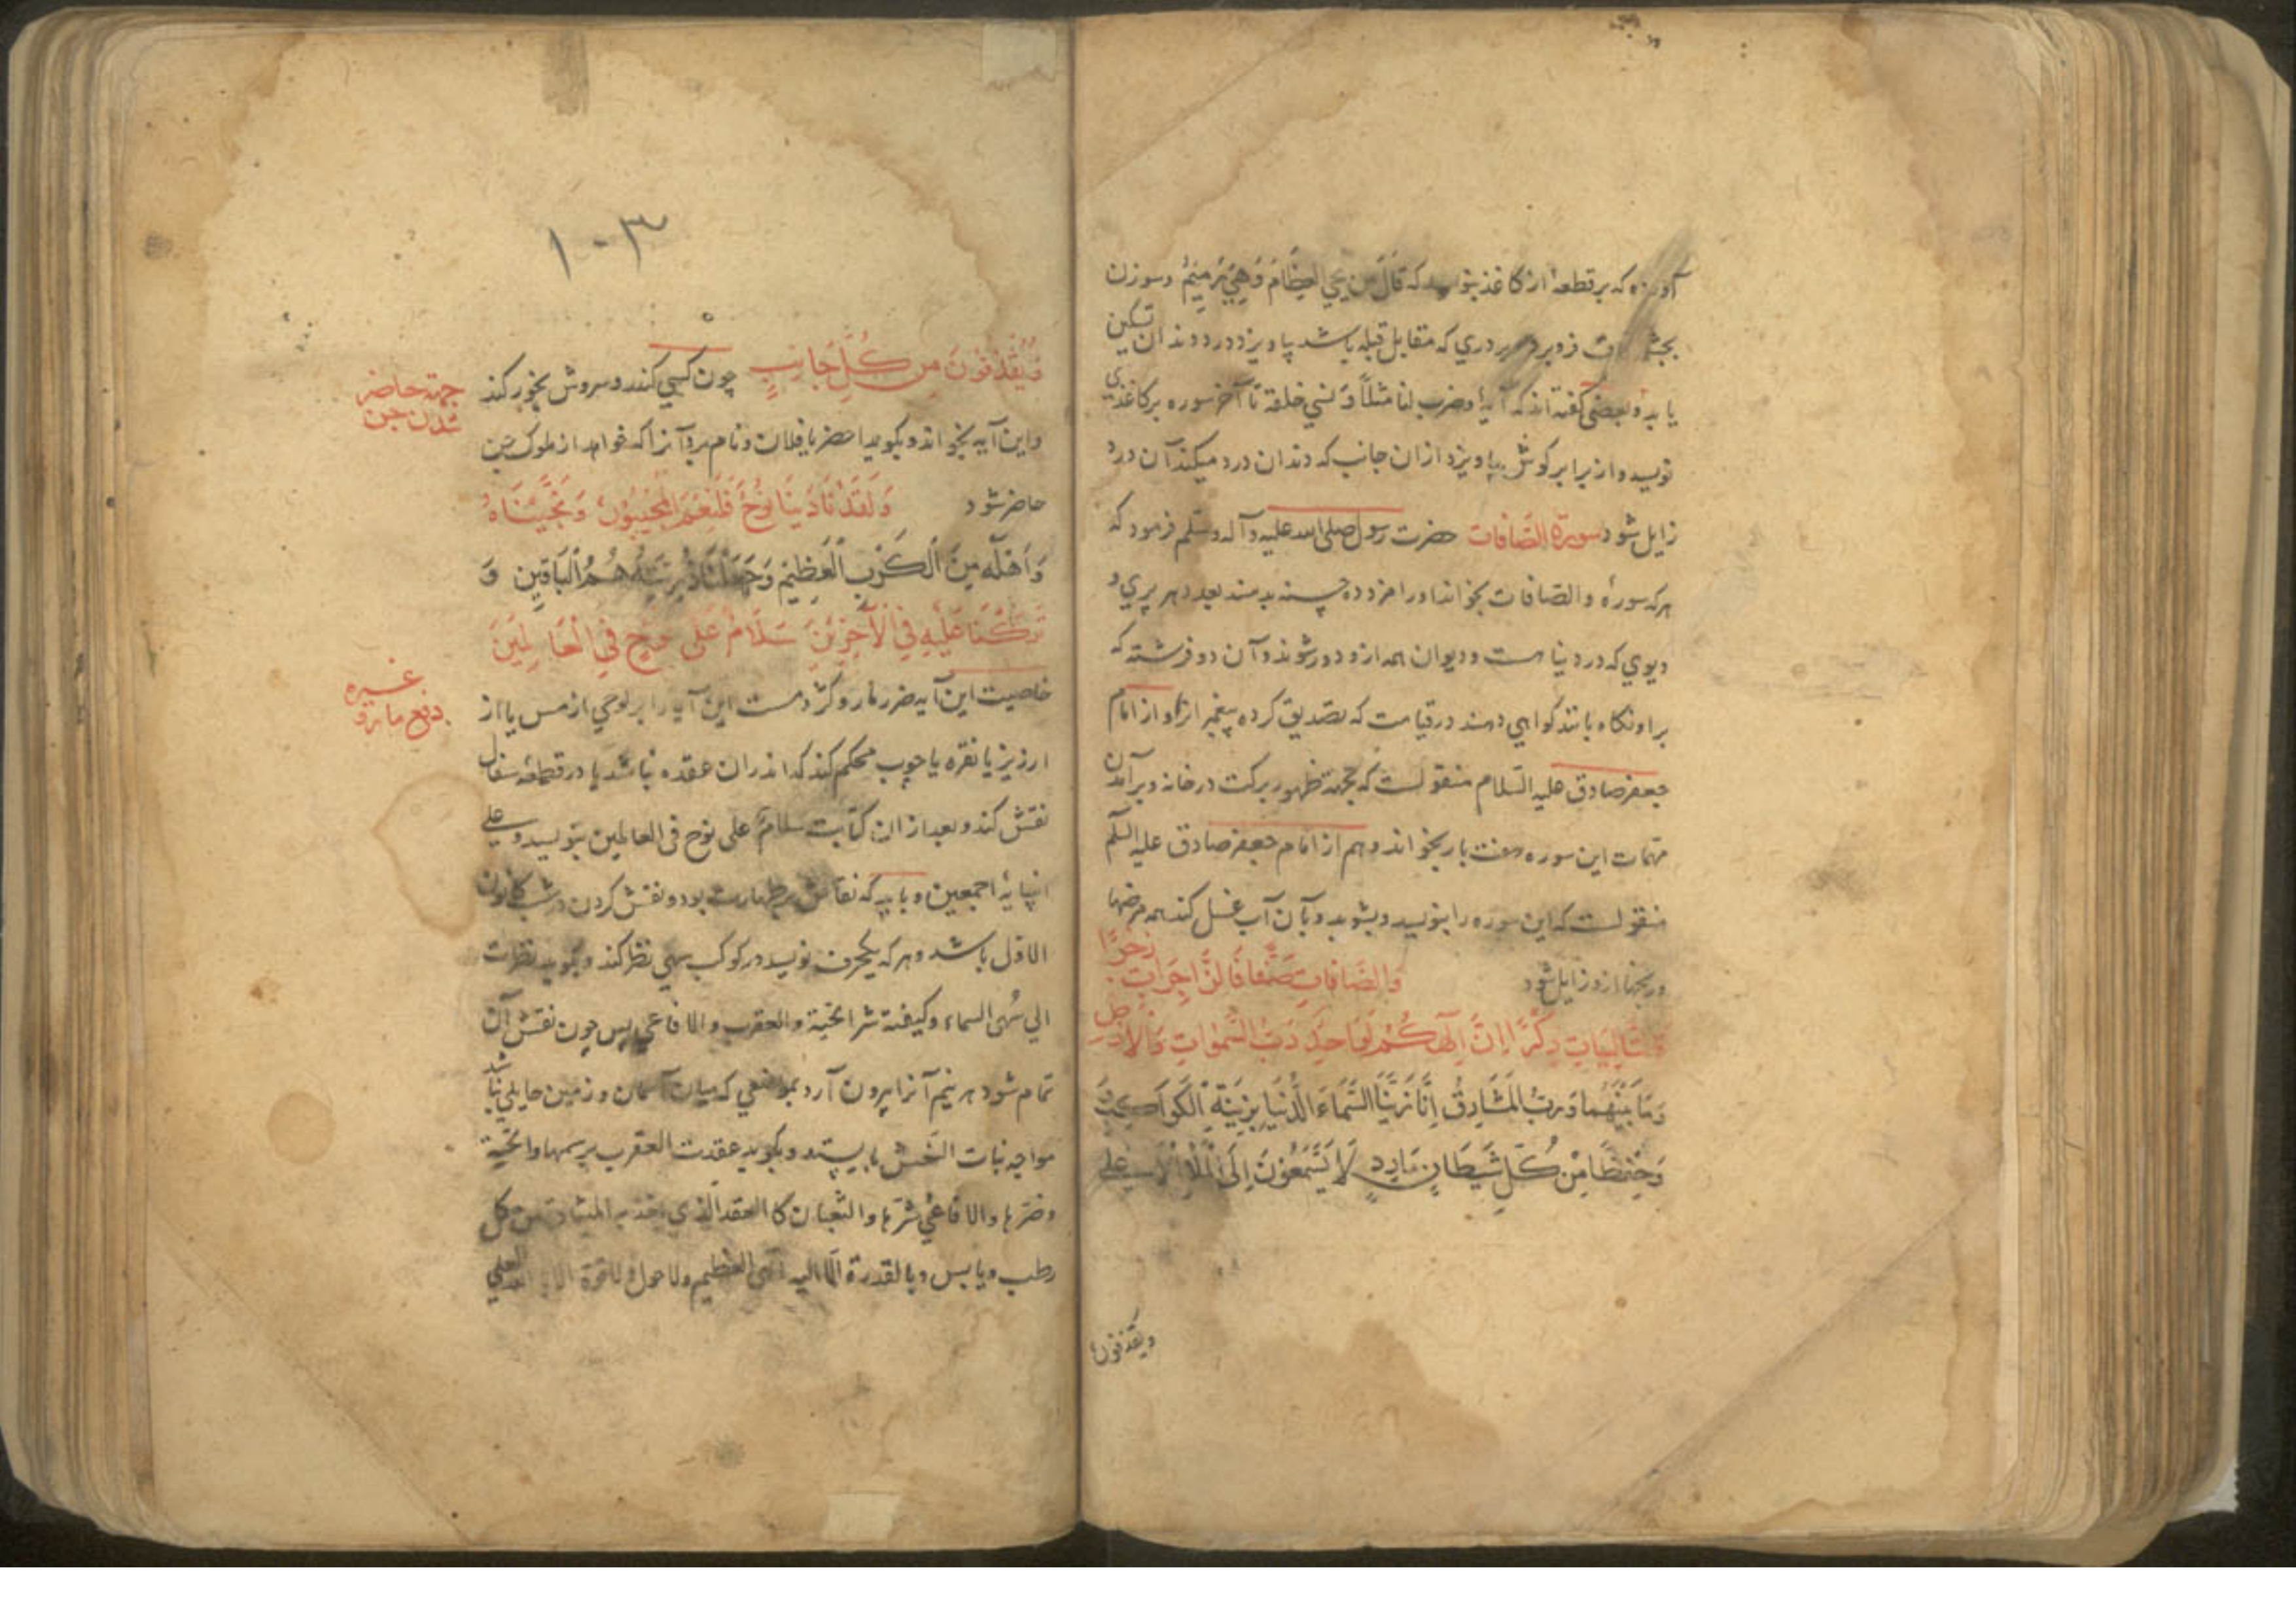 آورده که بر قطعهٔ از کاغذ بنویسد که قَالَ مَن یُحیِ العِظَامَ وَهِيَ رَمِیمٌ و سوزن
فرو برد بر دری که مقابل قبله باشد بیاویزد درد دندان تسکین
یابد و بعضی گفته‌اند که آیهٔ وضرب لنا مثلاً وَنسی خلقه تا آخر سوره بر کاغذی
نویسد و از برابر گوش بیاویزد از آن جانب که دندان درد میکند آن درد
زایل شود سورة الصّافات حضرت رسول صلی الله علیه و آله وسلّم فرمود که
هرکه سورهٔ والصّافات بخواند او را مزد ده حسنه بدهند بعدد هر پری و
دیوی که در دنیا هست و دیوان همه ازو دور شوند و آن دو فرشته که
بر او نگاه بانند گواهی دهند در قیامت که تصدیق کرده پیغمبر انرا و از امام
جعفر صادق علیه السّلام منقولست که بجهة ظهور برکت در خانه و برآمدن
مهمات این سوره هفت بار بخواند و هم از امام جعفر صادق علیه السلّم
منقولست که این سوره را بنویسد و بشوید و بآن آب غسل کند همه مرضها
و رنجها ازو زایل شود وَالصَّافَاتِ صَفّاً فَالزَّاجِرَاتِ زَجْرًا
فَالتَّالِیَاتِ ذِکْرًا اِنَّ اِلٰهَکُمْ لَوَاحِدٌ رَبُّ السَّمٰوَاتِ وَالْاَرْضِ
وَمَا بَیْنَهُمَا وَرَبُّ الْمَشَارِقِ اِنَّا زَیَّنَّا السَّمَاءَ الدُّنْیَا بِزِینَةٍ الْکَوَاکِبِ
وَحِفْظًا مِنْ کُلِّ شَیْطَانٍ مَارِدٍ لَا یَسَّمَّعُونَ اِلَی الْمَلَاِ الْاَعْلٰی
ویقذفون
۱۰۳
وَیُقْذَفُونَ مِن کُلِّ جَانِبٍ چون کسی کندر و سروش بخور کند
جهة حاضر
شدن جن
و این آیه بخواند و بگوید احضر یا فلان و نام برد آنرا که خواهد از ملوک جن
حاضر شود وَلَقَدْ نَادَینَا نُوحٌ فَلَنِعْمَ الْمُجِیبُونَ وَنَجَّیْنَاهُ
وَاَهْلَهُ مِنَ الْکَرْبِ الْعَظِیمِ وَجَعَلْنَا ذُرِّیَّتَهُ هُمُ الْبَاقِینَ وَ
تَرَکْنَا عَلَیْهِ فِی الْاٰخِرِینَ سَلَامٌ عَلٰی نُوحٍ فِی الْعَالَمِینَ
خاصیت این آیه ضرر مار و کژدمست این آیه را بر لوحی از مس یا از
دفع مار و
غیره
ارزیز یا نقره یا چوب محکم کند که اندران عقده نباشد یا در قطعهٔ سفال
نقش کند و بعد از ان کتابت سلامٌ علی نوح فی العالمین بنویسد و علی
انبیائه اجمعین و باید که نقاش بر طهارت بود و نقش کردن در شب کانون
الاوّل باشد و هر که یکحرف نویسد در کوکب سهی نظر کند و بگوید نظرت
الی سُهی السماء و کیفیة شر الحیّة و العقرب و الافاعی پس چون نقش آن
تمام شود هر نیم آنرا بیرون آرد بموضعی که میان آسمان و زمین حایلی نباشد
مواجه بنات النّعش بایستد و بگوید عقدت العقرب بسمها و الحیّة
وضرّها والافاعی شرّها والثعبان کالعقد الذی اخذ به المیثاق من کل
رطب و یابس و بالقدرة العظیم ولا حول ولا قوّة الا بالله العلی